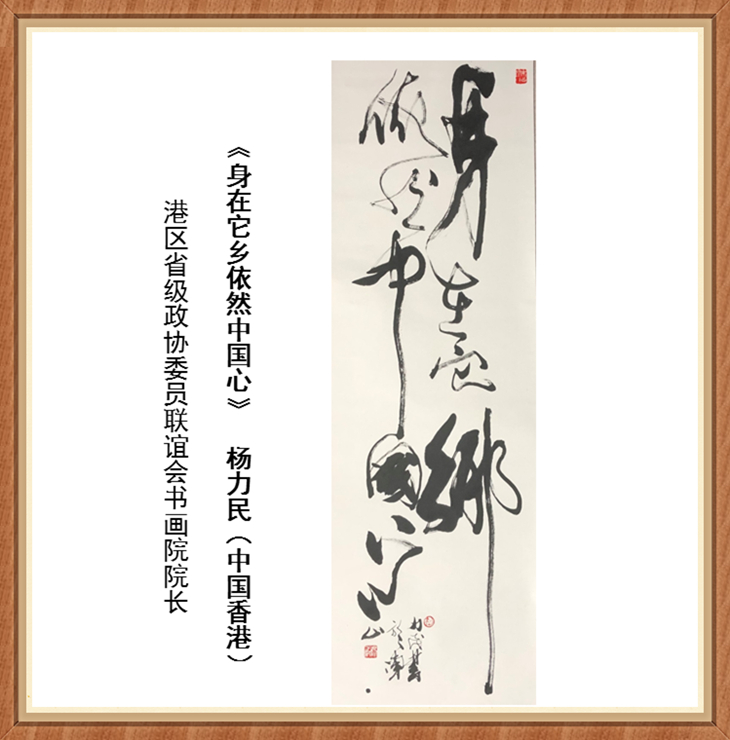 身在它鄉
依然中國心
《身在它乡依然中国心》 杨力民（中国香港）
港区省级政协委员联谊会书画院院长